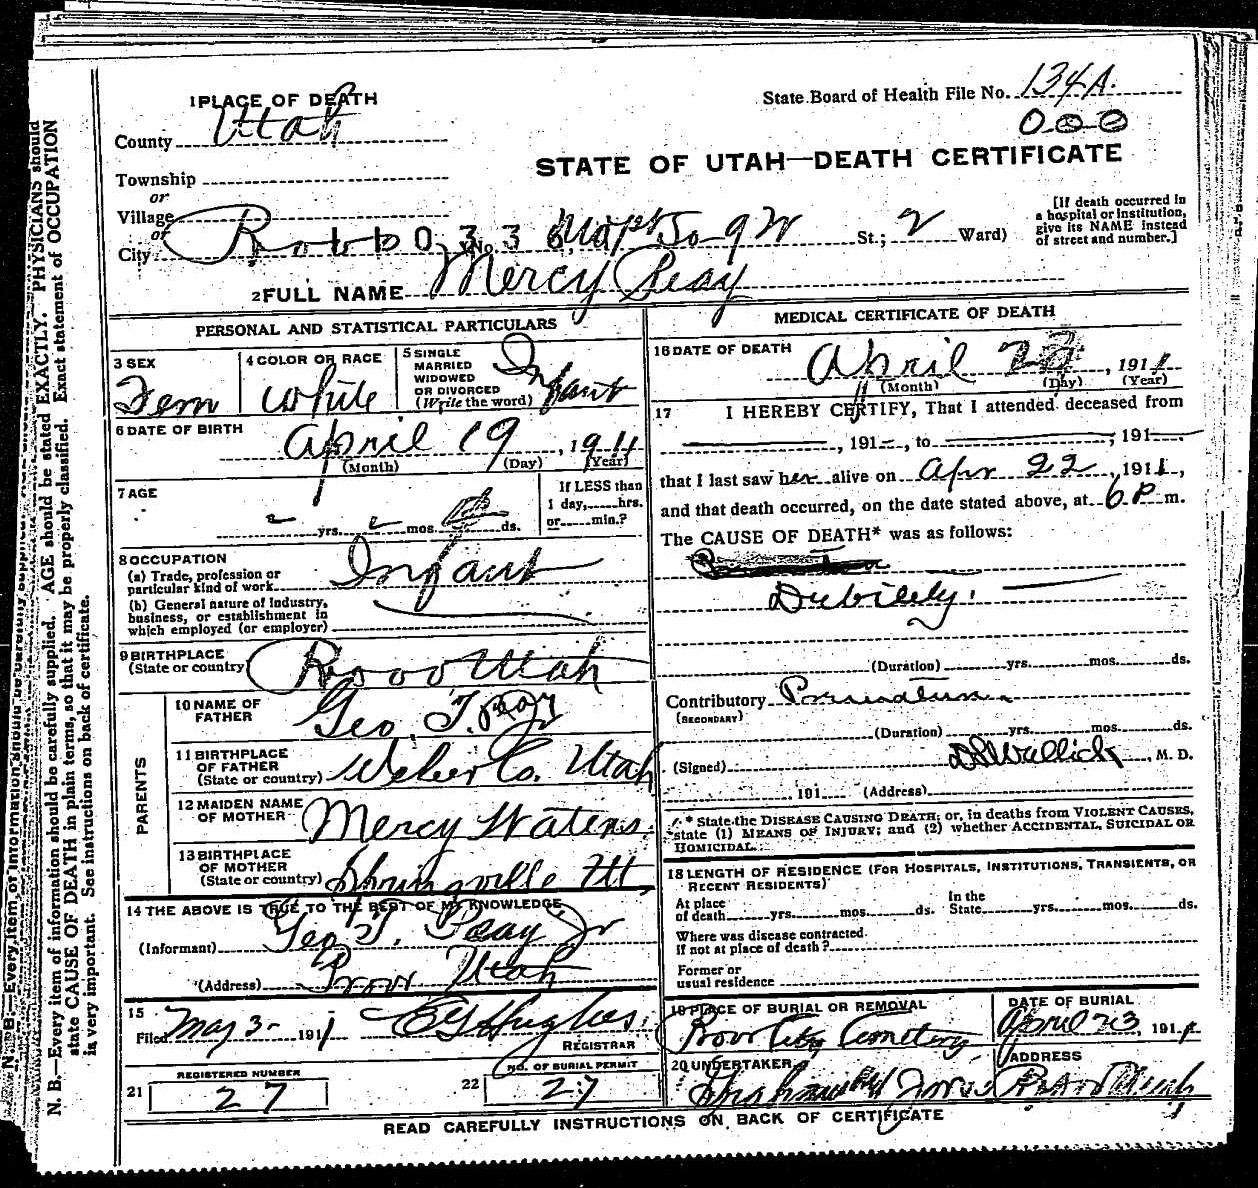 1 PLACE OF DEATH
State Board of Health File No. 134A.
County Utah
000
STATE OF UTAH—DEATH CERTIFICATE
Township
or
Village
or
City Provo No. St.; 2 Ward)
[If death occurred in a hospital or institution, give its NAME instead of street and number.]
2 FULL NAME Mercy Peay
PERSONAL AND STATISTICAL PARTICULARS
3 SEX
Fem
4 COLOR OR RACE
White
5 SINGLE
MARRIED
WIDOWED
OR DIVORCED
(Write the word)
Infant
6 DATE OF BIRTH
April 19, 1911
(Month) (Day) (Year)
7 AGE
yrs. mos. ds.
If LESS than
1 day, hrs.
or min.?
8 OCCUPATION
(a) Trade, profession or
particular kind of work Infant
(b) General nature of Industry,
business, or establishment in
which employed (or employer)
9 BIRTHPLACE
(State or country) Provo Utah
PARENTS
10 NAME OF
FATHER Geo. T. Peay Jr
11 BIRTHPLACE
OF FATHER
(State or country) Weber Co. Utah
12 MAIDEN NAME
OF MOTHER Mercy Waters.
13 BIRTHPLACE
OF MOTHER
(State or country) Springville Ut
14 THE ABOVE IS TRUE TO THE BEST OF MY KNOWLEDGE
(Informant) Geo T. Peay Jr
(Address) Provo Utah
15
Filed May 3- 1911 Hughes.
REGISTRAR
REGISTERED NUMBER
21 27
NO. OF BURIAL PERMIT
22 27
MEDICAL CERTIFICATE OF DEATH
16 DATE OF DEATH
April 22, 1911
(Month) (Day) (Year)
17 I HEREBY CERTIFY, That I attended deceased from
, 191 , to , 191
that I last saw her alive on Apr 22, 1911,
and that death occurred, on the date stated above, at 6 P m.
The CAUSE OF DEATH* was as follows:
Debility.
(Duration) yrs. mos. ds.
Contributory
(SECONDARY)
(Duration) yrs. mos. ds.
(Signed) M. D.
191 (Address)
* State the DISEASE CAUSING DEATH; or, in deaths from VIOLENT CAUSES,
state (1) MEANS OF INJURY; and (2) whether ACCIDENTAL, SUICIDAL OR
HOMICIDAL.
18 LENGTH OF RESIDENCE (FOR HOSPITALS, INSTITUTIONS, TRANSIENTS, OR
RECENT RESIDENTS)
At place
of death yrs. mos. ds.
In the
State yrs. mos. ds.
Where was disease contracted
if not at place of death?
Former or
usual residence
19 PLACE OF BURIAL OR REMOVAL
Provo City Cemetery
DATE OF BURIAL
April 23, 1911
20 UNDERTAKER
ADDRESS
Provo Utah
READ CAREFULLY INSTRUCTIONS ON BACK OF CERTIFICATE
N. B.—Every item of information should be carefully supplied. AGE should be stated EXACTLY. PHYSICIANS should
state CAUSE OF DEATH in plain terms, so that it may be properly classified. Exact statement of OCCUPATION
is very important. See instructions on back of certificate.